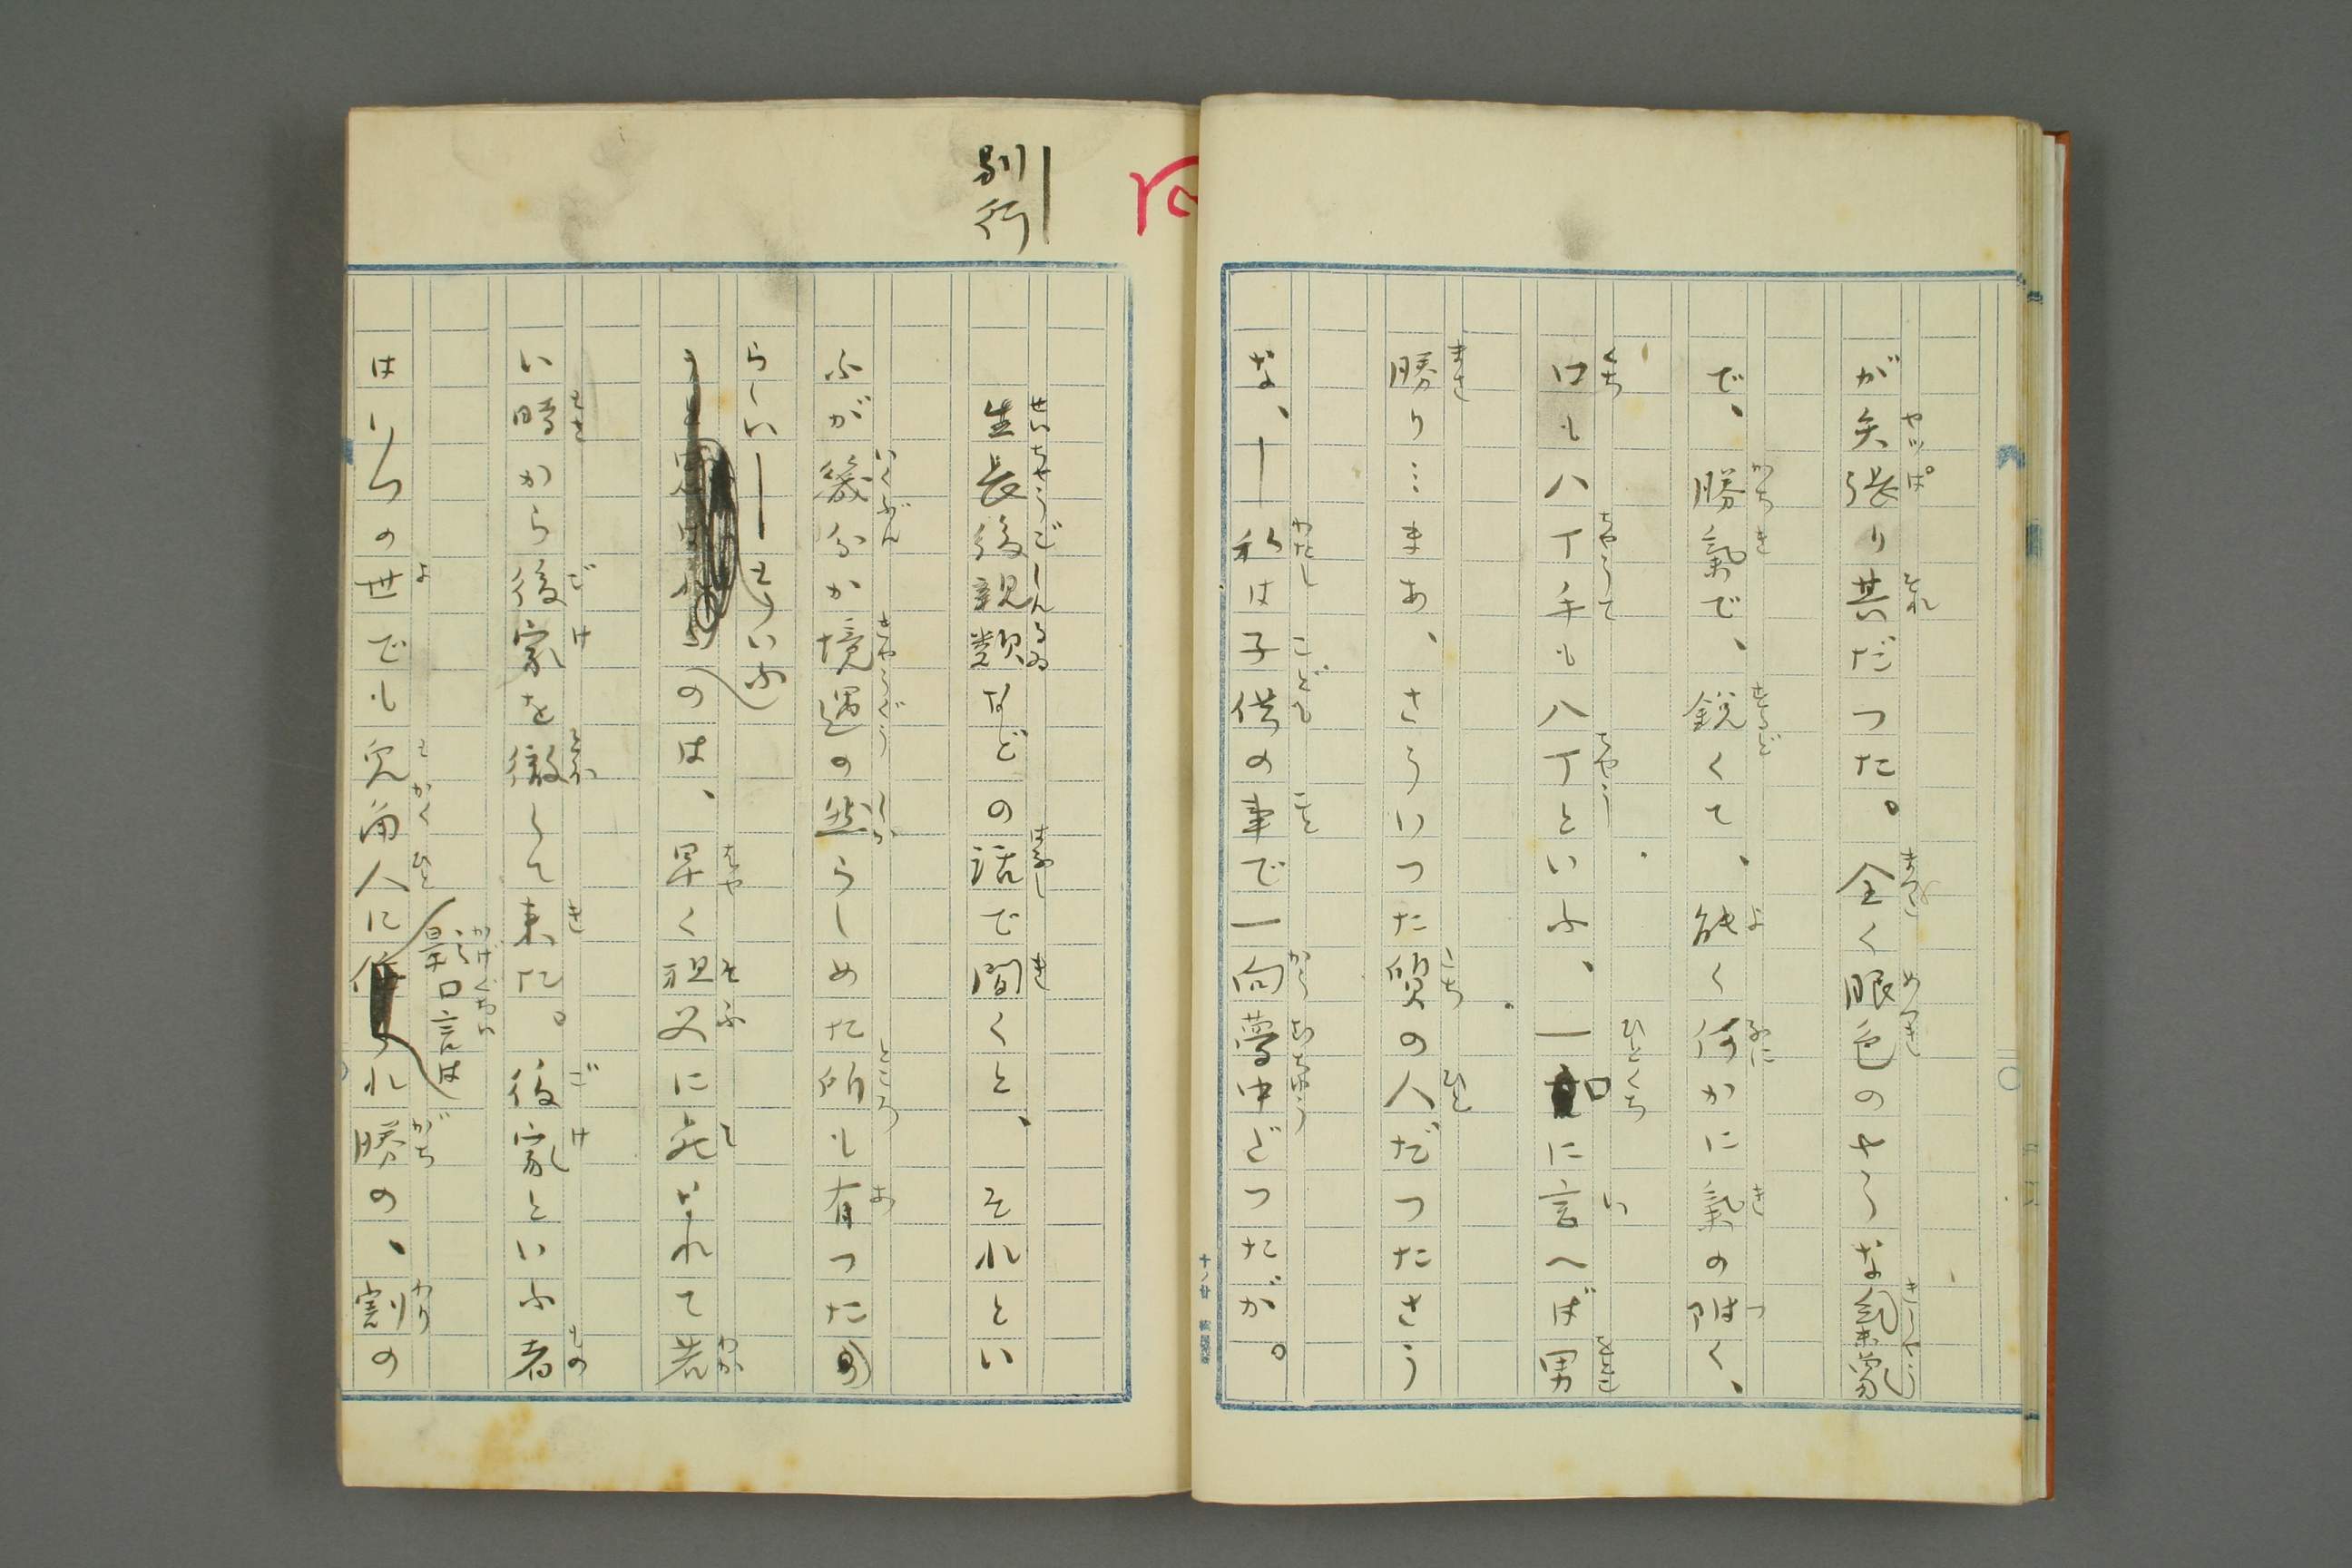 が矢張り其だつた。全く眼色のやうな氣象
で、勝氣で、鋭くて、能く何かに氣の附く、
口も八丁手も八丁といふ、一口に言へば男
勝り…まあ、さういつた質の人だつたさう
な、―私は子供の事で一向夢中だつたが。
別行
生長後親類などの話で聞くと、それとい
ふが幾分か境遇の然らしめた所も有つた
らしい―といふ
のは、早く祖父に死なれて若
い時から後家を徹して来た。後家といふ者
はいつの世でも兎角人に
影口言は
れ勝の、割の